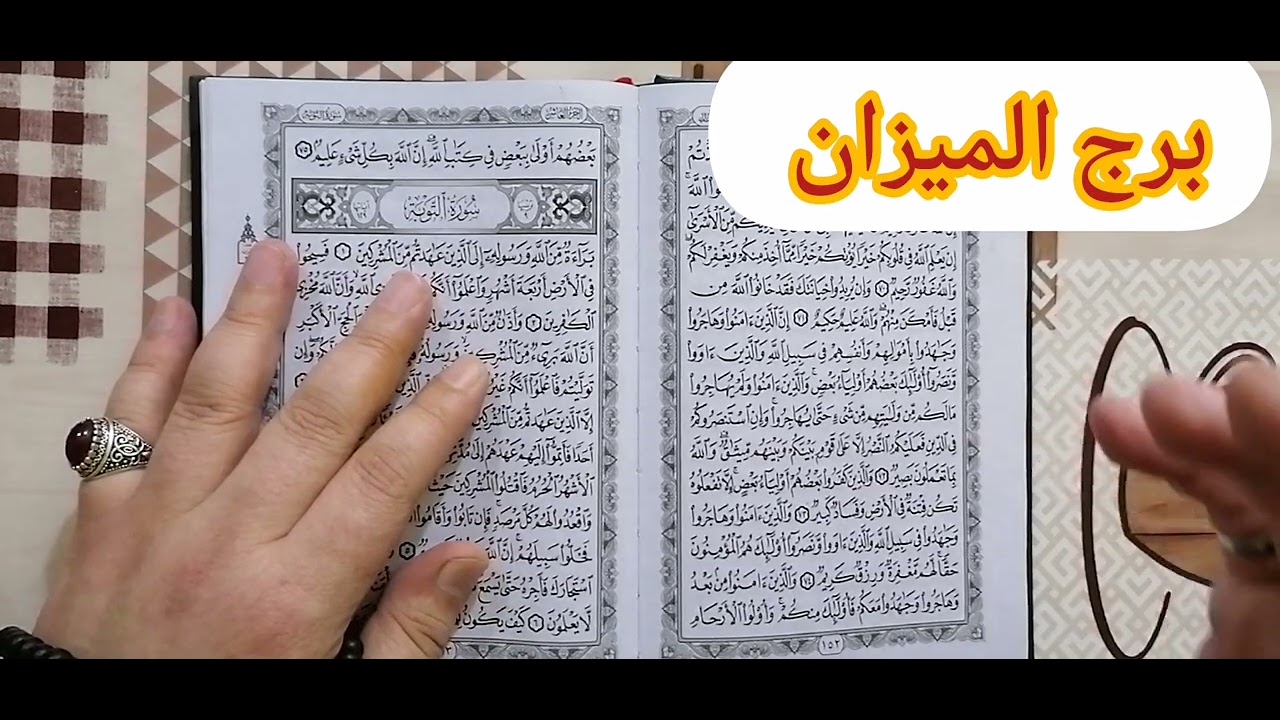 برج الميزان
مِّنَ ٱلْأَسْرَىٰٓ
إِن يَعْلَمِ ٱللَّهُ فِى قُلُوبِكُمْ خَيْرًا يُؤْتِكُمْ خَيْرًا مِّمَّآ أُخِذَ مِنكُمْ وَيَغْفِرْ لَكُمْ
وَٱللَّهُ غَفُورٌ رَّحِيمٌ ٧٠ وَإِن يُرِيدُوا۟ خِيَانَتَكَ فَقَدْ خَانُوا۟ ٱللَّهَ مِن
قَبْلُ فَأَمْكَنَ مِنْهُمْ وَٱللَّهُ عَلِيمٌ حَكِيمٌ ٧١ إِنَّ ٱلَّذِينَ ءَامَنُوا۟ وَهَاجَرُوا۟
وَجَٰهَدُوا۟ بِأَمْوَٰلِهِمْ وَأَنفُسِهِمْ فِى سَبِيلِ ٱللَّهِ وَٱلَّذِينَ ءَاوَوا۟
وَّنَصَرُوٓا۟ أُو۟لَٰٓئِكَ بَعْضُهُمْ أَوْلِيَآءُ بَعْضٍ وَٱلَّذِينَ ءَامَنُوا۟ وَلَمْ يُهَاجِرُوا۟
مَا لَكُم مِّن وَلَٰيَتِهِم مِّن شَىْءٍ حَتَّىٰ يُهَاجِرُوا۟ وَإِنِ ٱسْتَنصَرُوكُمْ
فِى ٱلدِّينِ فَعَلَيْكُمُ ٱلنَّصْرُ إِلَّا عَلَىٰ قَوْمٍۭ بَيْنَكُمْ وَبَيْنَهُم مِّيثَٰقٌ وَٱللَّهُ
بِمَا تَعْمَلُونَ بَصِيرٌ ٧٢ وَٱلَّذِينَ كَفَرُوا۟ بَعْضُهُمْ أَوْلِيَآءُ بَعْضٍ إِلَّا تَفْعَلُوهُ
تَكُن فِتْنَةٌ فِى ٱلْأَرْضِ وَفَسَادٌ كَبِيرٌ ٧٣ وَٱلَّذِينَ ءَامَنُوا۟ وَهَاجَرُوا۟
وَجَٰهَدُوا۟ فِى سَبِيلِ ٱللَّهِ وَٱلَّذِينَ ءَاوَوا۟ وَّنَصَرُوٓا۟ أُو۟لَٰٓئِكَ هُمُ ٱلْمُؤْمِنُونَ
حَقًّا لَّهُم مَّغْفِرَةٌ وَرِزْقٌ كَرِيمٌ ٧٤ وَٱلَّذِينَ ءَامَنُوا۟ مِنۢ بَعْدُ
وَهَاجَرُوا۟ وَجَٰهَدُوا۟ مَعَكُمْ فَأُو۟لَٰٓئِكَ مِنكُمْ وَأُو۟لُوا۟ ٱلْأَرْحَامِ
١٥٢
الجزء العاشر سورة التوبة
بَعْضُهُمْ أَوْلَىٰ بِبَعْضٍ فِى كِتَٰبِ ٱللَّهِ إِنَّ ٱللَّهَ بِكُلِّ شَىْءٍ عَلِيمٌۢ ٧٥
سُورَةُ التَّوْبَةِ
بَرَآءَةٌ مِّنَ ٱللَّهِ وَرَسُولِهِۦٓ إِلَى ٱلَّذِينَ عَٰهَدتُّم مِّنَ ٱلْمُشْرِكِينَ ١ فَسِيحُوا۟
فِى ٱلْأَرْضِ أَرْبَعَةَ أَشْهُرٍ وَٱعْلَمُوٓا۟ أَنَّكُمْ ٱللَّهِ وَأَنَّ ٱللَّهَ مُخْزِى
ٱلْكَٰفِرِينَ ٢ وَأَذَٰنٌ مِّنَ ٱللَّهِ وَرَسُولِهِ ٱلْحَجِّ ٱلْأَكْبَرِ
أَنَّ ٱللَّهَ بَرِىٓءٌ مِّنَ ٱلْمُشْرِكِينَ وَرَسُولُهُۥ وَإِن
تَوَلَّيْتُمْ فَٱعْلَمُوٓا۟ أَنَّكُمْ غَيْرُ
إِلَّا ٱلَّذِينَ عَٰهَدتُّم مِّنَ ٱلْمُشْرِكِينَ
أَحَدًا فَأَتِمُّوٓا۟ إِلَيْهِمْ عَهْدَهُمْ إِلَىٰ
ٱلْأَشْهُرُ ٱلْحُرُمُ فَٱقْتُلُوا۟ ٱلْمُشْرِكِينَ حَيْثُ
وَٱقْعُدُوا۟ لَهُمْ كُلَّ مَرْصَدٍ فَإِن تَابُوا۟ وَأَقَامُوا۟
فَخَلُّوا۟ سَبِيلَهُمْ إِنَّ ٱللَّهَ
ٱسْتَجَارَكَ فَأَجِرْهُ حَتَّىٰ يَسْمَعَ
لَّا يَعْلَمُونَ ٦ كَيْفَ يَكُونُ